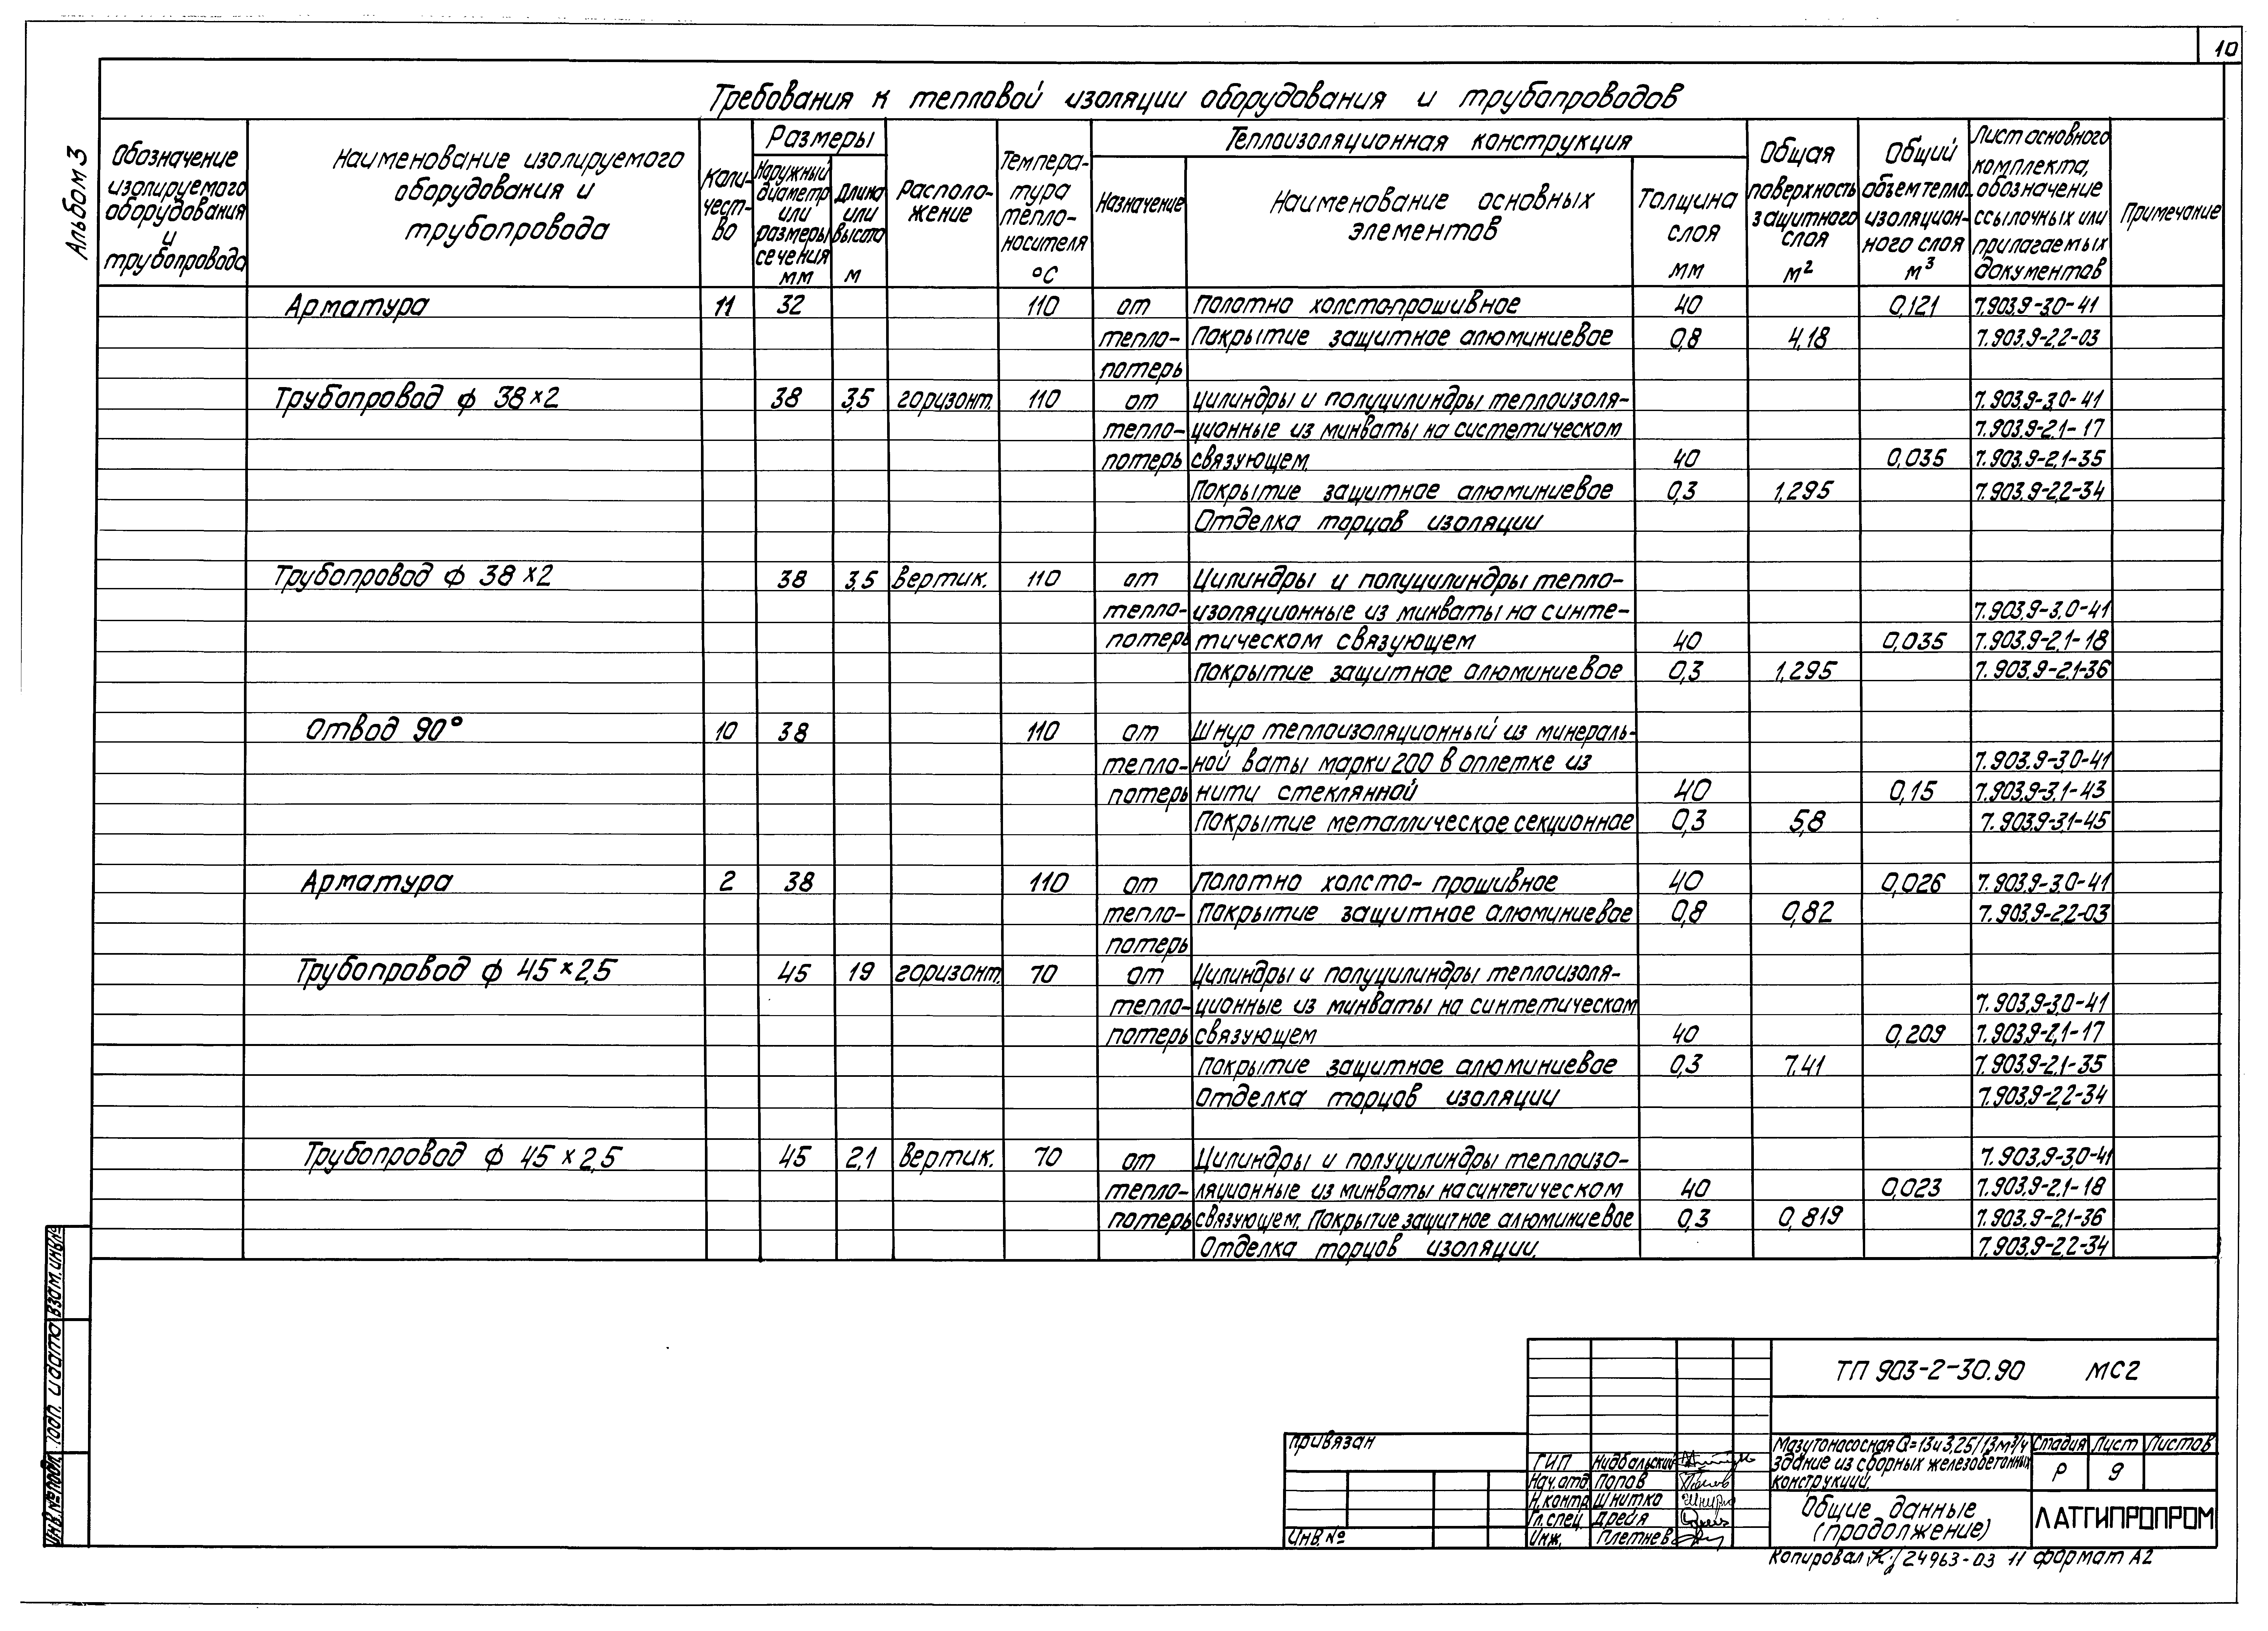 10
Альбом 3
Требования к тепловой изоляции оборудования и трубопроводов
Обозначение изолируемого оборудования и трубопровода
Наименование изолируемого оборудования и трубопровода
Коли-чест-во
Размеры
Наружный диаметр или размеры сечения мм
Длина или высота м
Располо-жение
Темпера-тура тепло-носителя °С
Теплоизоляционная конструкция
Назначение
Наименование основных элементов
Толщина слоя мм
Общая поверхность защитного слоя м²
Общий объем тепло-изоляцион-ного слоя м³
Лист основного комплекта, обозначение ссылочных или прилагаемых документов
Примечание
Арматура 11 32 110 от Полотно холстопрошивное 40 0,121 7.903.9-3.0-41
тепло- Покрытие защитное алюминиевое 0,8 4,18 7.903.9-2.2-03
потерь
Трубопровод ф 38×2 38 3,5 горизонт. 110 от цилиндры и полуцилиндры теплоизоля- 7.903.9-3.0-41
тепло- ционные из минваты на систетическом 7.903.9-2.1-17
потерь связующем. 40 0,035 7.903.9-2.1-35
Покрытие защитное алюминиевое 0,3 1,295 7.903.9-2.2-34
Отделка торцов изоляции
Трубопровод ф 38×2 38 3,5 вертик. 110 от Цилиндры и полуцилиндры тепло-
тепло- изоляционные из минваты на синте- 7.903.9-3.0-41
потерь тическом связующем 40 0,035 7.903.9-2.1-18
Покрытие защитное алюминиевое 0,3 1,295 7.903.9-2.1-36
Отвод 90° 10 38 110 от Шнур теплоизоляционный из минераль-
тепло- ной ваты марки 200 в оплетке из 7.903.9-3.0-41
потерь нити стеклянной 40 0,15 7.903.9-3.1-43
Покрытие металлическое секционное 0,3 5,8 7.903.9-3.1-45
Арматура 2 38 110 от Полотно холсто-прошивное 40 0,026 7.903.9-3.0-41
тепло- Покрытие защитное алюминиевое 0,8 0,82 7.903.9-2.2-03
потерь
Трубопровод ф 45×2,5 45 19 горизонт. 70 от Цилиндры и полуцилиндры теплоизоля-
тепло- ционные из минваты на синтетическом 7.903.9-3.0-41
потерь связующем 40 0,209 7.903.9-2.1-17
Покрытие защитное алюминиевое 0,3 7.41 7.903.9-2.1-35
Отделка торцов изоляции 7.903.9-2.2-34
Трубопровод ф 45×2,5 45 2,1 вертик. 70 от Цилиндры и полуцилиндры теплоизо- 7.903.9-3.0-41
тепло- ляционные из минваты на синтетическом 40 0,023 7.903.9-2.1-18
потерь связующем. Покрытие защитное алюминиевое 0,3 0,819 7.903.9-2.1-36
Отделка торцов изоляции. 7.903.9-2.2-34
Взам. инв. №
Подп. и дата
Инв. № подл.
ТП 903-2-30.90 МС2
Привязан
Инв. №
ГИП Нидбальский
Нач. отд. Попов
Н. контр. Шнитко
Гл. спец. Дрейя
Инж. Плетнев
Мазутонасосная Q=13и3,25/13м³/ч
здание из сборных железобетонных
конструкций.
Стадия Лист Листов
Р 9
Общие данные
(продолжение)
ЛАТГИПРОПРОМ
Копировал 24963-03 11 формат А2